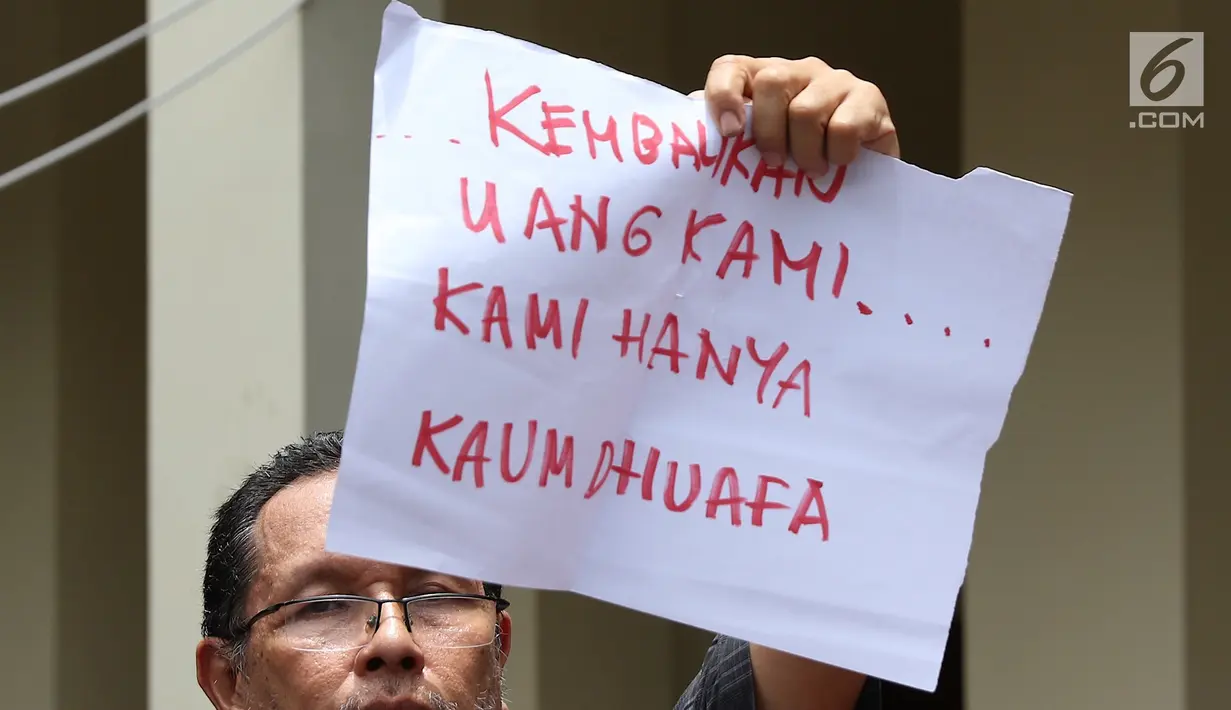 6
.COM
.... KEMBALIKAN
UANG KAMI.....
KAMI HANYA
KAUM DHUAFA